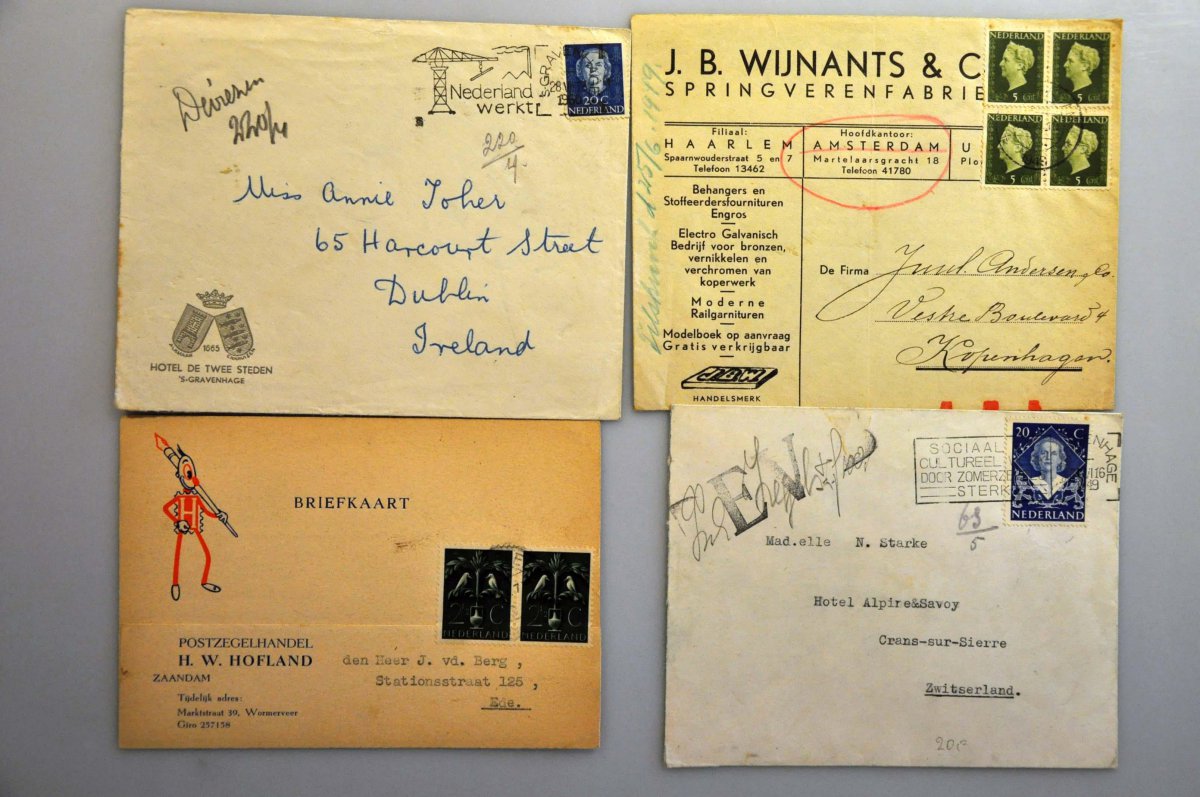 Nederland
werkt
'S-GRA
28
20 C
NEDERLAND
220
4
Miss Annie Toher
65 Harcourt Street
Dublin
Ireland
1665
HOTEL DE TWEE STEDEN
'S-GRAVENHAGE
J. B. WIJNANTS & C
SPRINGVERENFABRIE
NEDERLAND
5 Cent
NEDERLAND
5 Cent
NEDERLAND
5 Cent
NEDERLAND
5 Cent
Filiaal:
HAARLEM
Spaarnwouderstraat 5 en 7
Telefoon 13462
Hoofdkantoor:
AMSTERDAM
Martelaarsgracht 18
Telefoon 41780
U
Plo
25/6. 1949.
Behangers en
Stoffeerdersfournituren
Engros
Electro Galvanisch
Bedrijf voor bronzen,
vernikkelen en
verchromen van
koperwerk
Moderne
Railgarnituren
Modelboek op aanvraag
Gratis verkrijgbaar
J.B.W.
HANDELSMERK
De Firma Juul. Andersen & Co.
Vestre Boulevard 4
Kopenhagen.
BRIEFKAART
H
2½ C
NEDERLAND
2½ C
NEDERLAND
POSTZEGELHANDEL
H. W. HOFLAND
ZAANDAM
Tijdelijk adres:
Marktstraat 39, Wormerveer
Giro 257158
den Heer J. vd. Berg ,
Stationsstraat 125 ,
Ede.
EN
SOCIAAL
CULTUREEL
DOOR ZOMERZE
STERK
20 C
NEDERLAND
ENHAGE
VI.16
49
63
5
Mad.elle N. Starke
Hotel Alpire&Savoy
Crans-sur-Sierre
Zwitserland.
20c